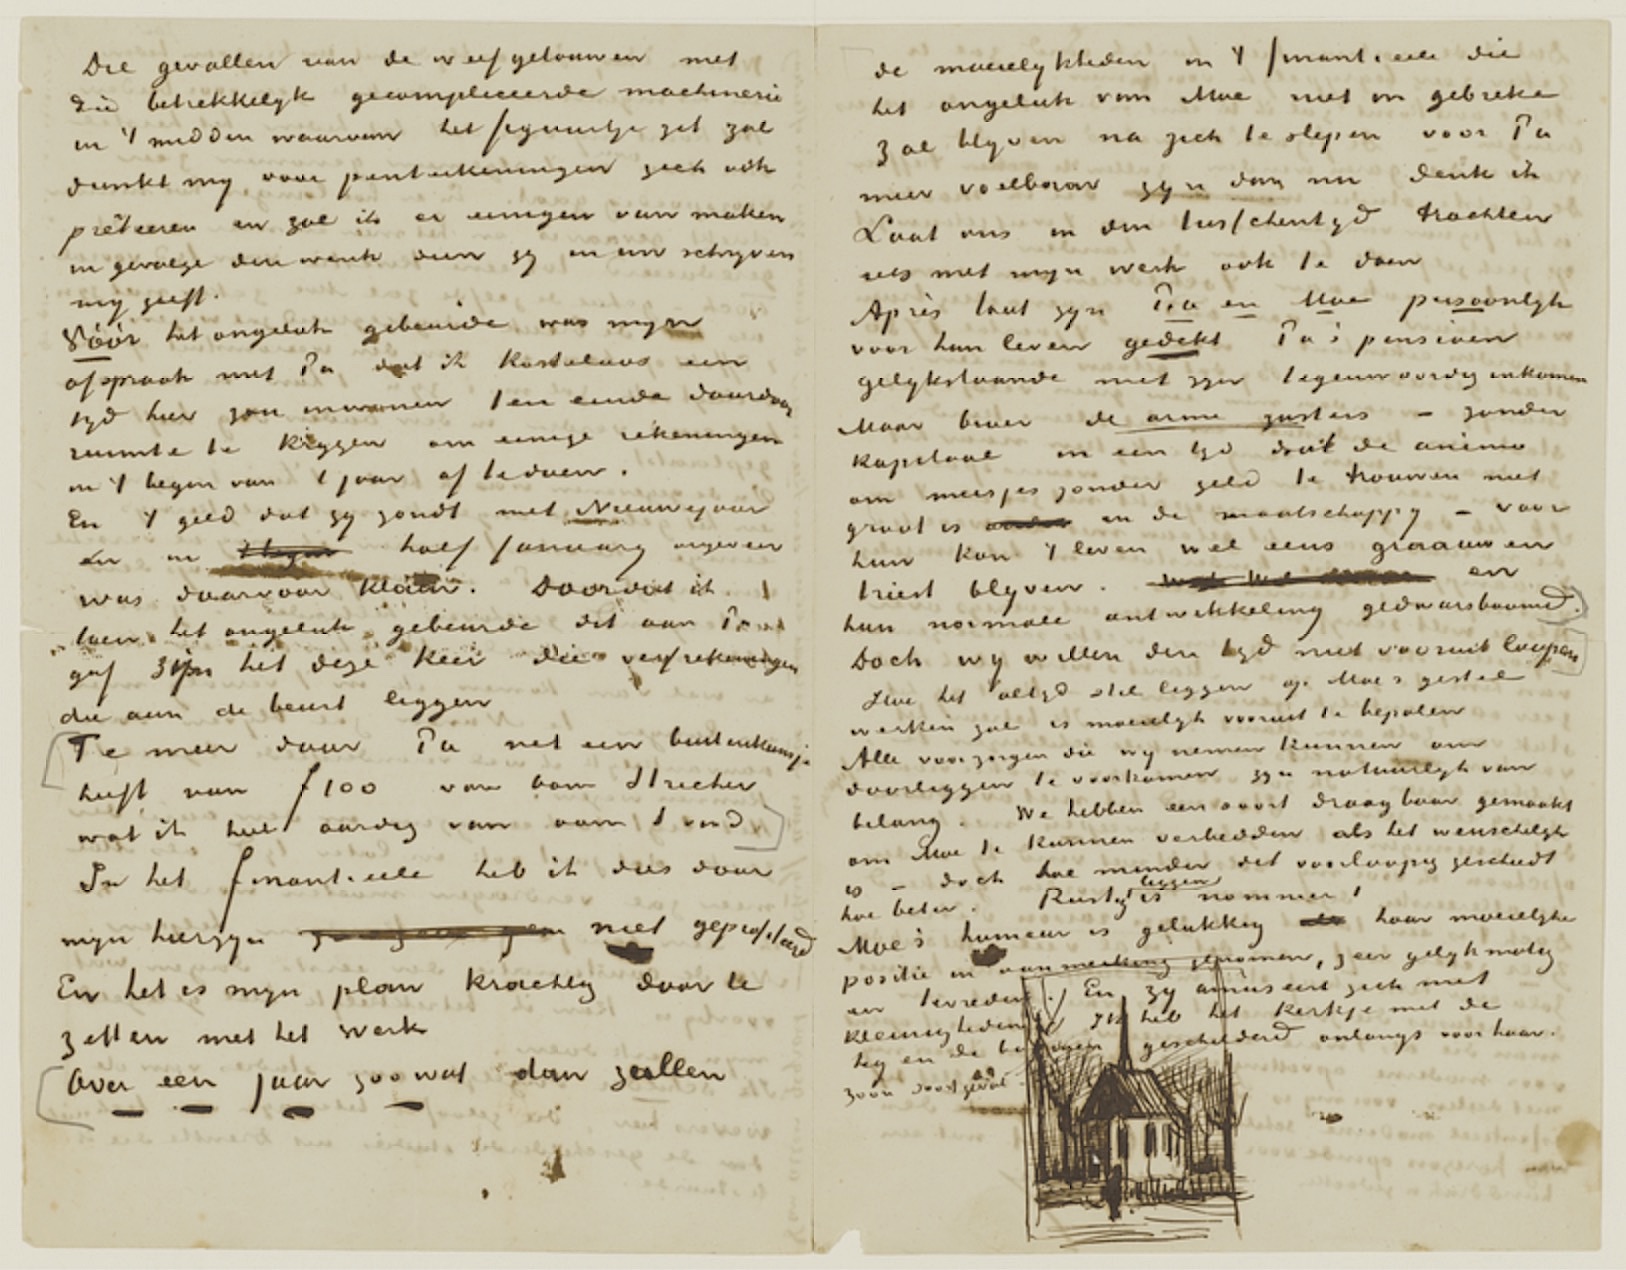 Die gevallen van de weefgetouwen met
die betrekkelyk gecompliceerde machinerie
in 't midden waarvan het figuurtje zit zal
dunkt my voor penteekeningen zich ook
prêteeren en zal ik er eenigen van maken
in gevolge den wenk dien gy in uw schryven
my geeft.
Vóór het ongeluk gebeurde was myn
afspraak met Pa dat ik kosteloos een
tyd hier zou inwonen ten einde daardoor
ruimte te krygen om eenige rekeningen
in 't begin van 't jaar af te doen.
En 't geld dat gy zondt met Nieuwejaar
en in half January ongeveer
was daarvoor klaar. Doordat ik
toen het ongeluk gebeurde dit aan Pa
gaf zyn het deze keer die verfrekeningen
die aan de beurt liggen
Te meer daar Pa net een buitenkansje
heeft van f 100 van oom Stricker
wat ik heel aardig van oom S vind
In het finantieele heb ik dus door
myn hierzyn niet geprofiteerd
En het is myn plan krachtig door te
zetten met het werk
Over een jaar zoowat dan zullen
de moeielykheden in 't finantieele die
het ongeluk van Moe niet in gebreke
zal blyven na zich te slepen voor Pa
meer voelbaar zyn dan nu denk ik
Laat ons in den tusschentyd trachten
iets met myn werk ook te doen
Après tout zyn Pa en Moe persoonlyk
voor hun leven gedekt Pa's pensioen
gelykstaande met zyn tegenwoordig inkomen
Maar broer de arme zusters – zonder
kapitaal in een tyd dat de animo
om meisjes zonder geld te trouwen niet
groot is in de maatschappy – voor
hun kan 't leven wel eens graauw en
triest blyven. en
hun normale ontwikkeling gedwarsboomd.
Doch wy willen den tyd niet vooruit loopen
Hoe het altyd stil liggen op Moe's gestel
werken zal is moeielyk vooruit te bepalen
Alle voorzorgen die wy nemen kunnen om
doorliggen te voorkomen zyn natuurlyk van
belang. We hebben een soort draagbaar gemaakt
om Moe te kunnen verbedden als het wenschelyk
is – doch hoe minder dit voorloopig geschiedt
hoe beter. Rustig liggen is nommer 1
Moe's humeur is gelukkig haar moeielyke
positie in aanmerking genomen, zeer gelykmatig
en tevreden. En zy amuseert zich met
kleinigheden Ik heb het kerkje met de
heg en de boomen geschilderd onlangs voor haar.
zoo'n soort geval